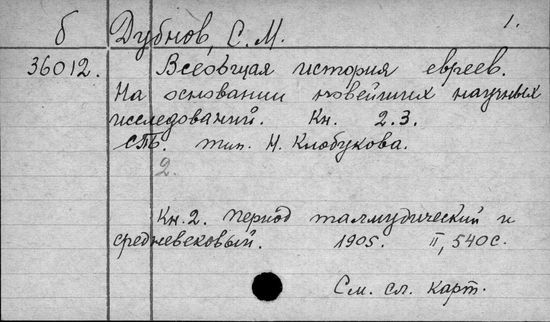 1.
б Дубнов, С. М.
36012. Всеобщая история евреев.
На основании новейших научных
исследований. Кн. 2.3.
СПб. тип. Н. Клобукова.
2.
Кн. 2. период талмудический и
средневековый. 1905. II, 540 с.
См. сл. карт.